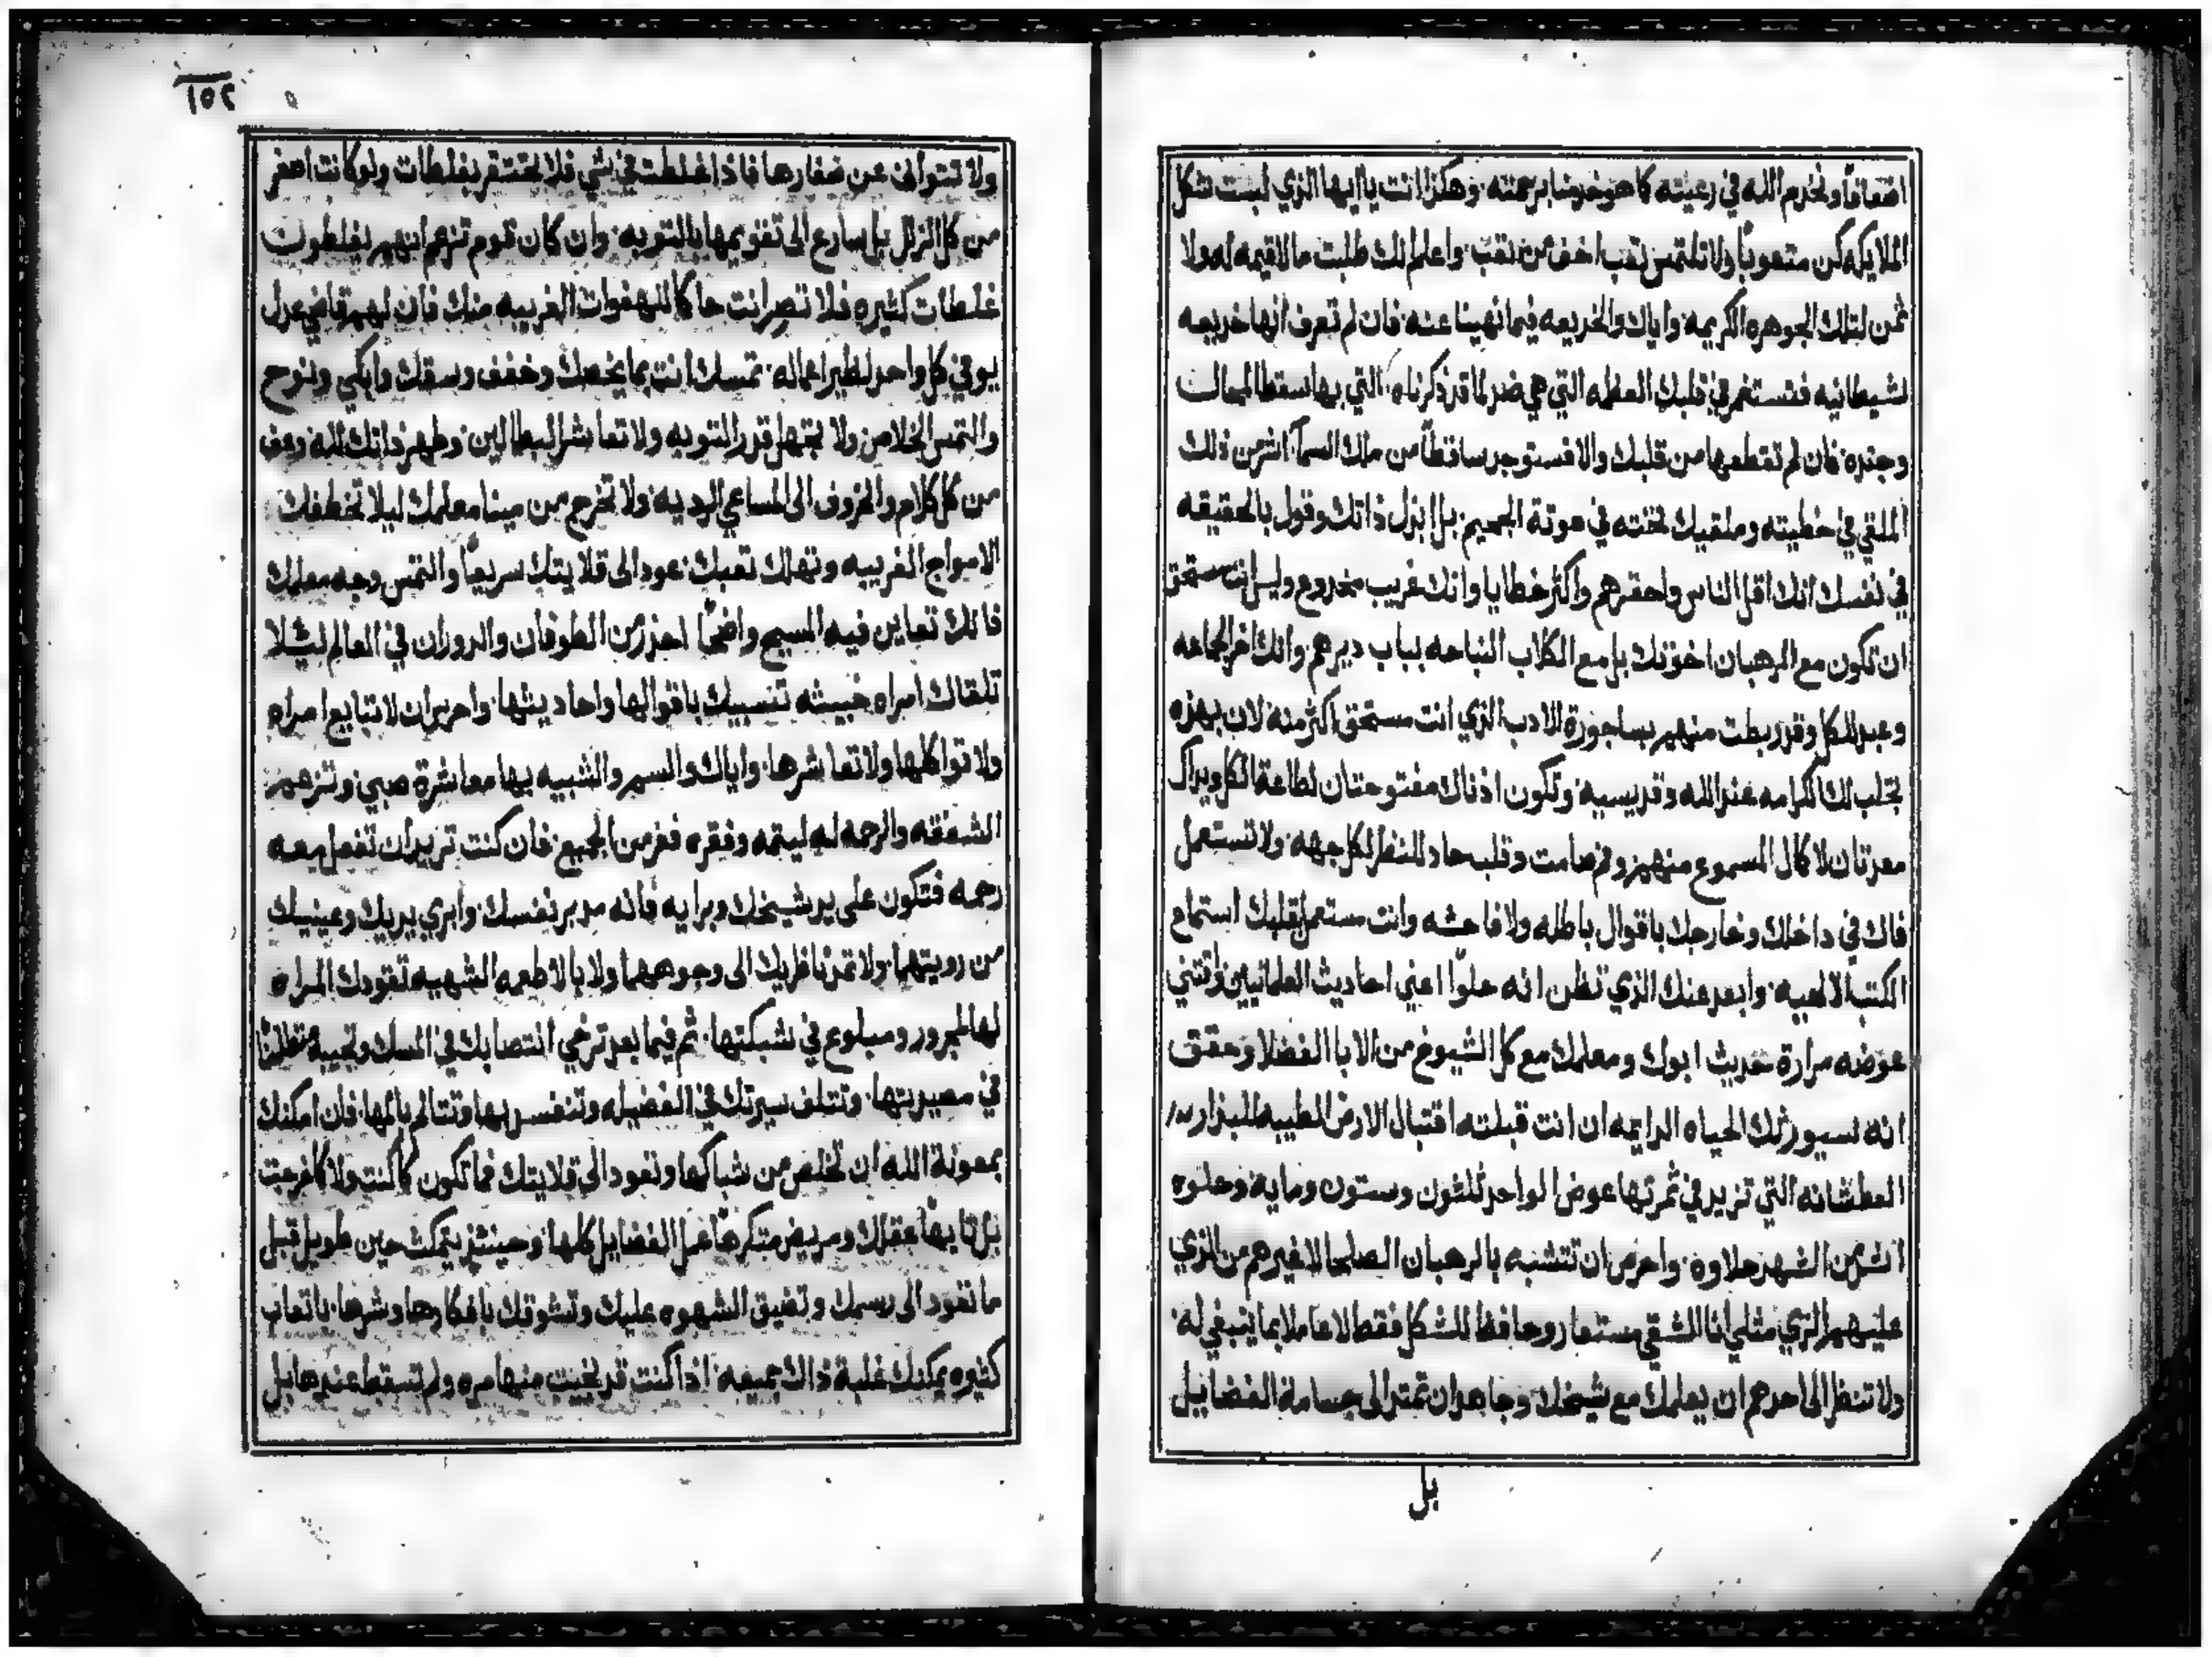 اضعافاً ونخدم الله في رعيته كما هو خدمنا برحمته. وهكذا انت يا ايها الذي لبست شكل
الملايكه كن متعوباً ولا تلتمس تعب اخف من تعب. واعلم انك طلبت ما لا قيمه له ولا
ثمن لتلك الجوهره الكريمه. واياك والخديعه فيما نهينا عنه. فان لم تعرف انها خديعه
لشيطانيه فتستغمر في قلبك العظمه التي هي ضد لما قد ذكرناه. التي بها سقط المحال
وجنده. فان لم تقطعها من قلبك والا فستوجد ساقطاً من ملك السمآ اشر من ذلك
الملقي في خطيته وملقيك تحته في هوتة الجحيم. بل انزل ذاتك وقول بالحقيقه
في نفسك انك اقل الناس واحقرهم واكثر خطايا وانك غريب مخدوع وليس انت مستحق
ان تكون مع الرهبان اخوتك بل مع الكلاب النباحه بباب ديرهم. وانك اخر الجماعه
وعبد للكل وقد ربطت منهم بساجورة الادب الذي انت مستحق اكثر منه لان بهذه
تجلب لك الكرامه عند الله وقديسيه. وتكون اذناك مفتوحتان لطاعة الكل ويداك
معدتان لاكمال المسموع منهم. وفم صامت وقلب حاد للنظر لكل جهه. ولا تستعمل
فاك في داخلك وخارجك باقوال باطله ولا فاحشه وانت مستعمل قلبك استماع
الكتب الالهيه. وابعد عنك الذي تظن انه حلوّا اعني احاديث العلمانيين واقتني
عوضه مرارة حديث ابوك ومعلمك مع كل الشيوخ من الابا الفضلا وحقق
انه سيورثك الحياه الدايمه ان انت قبلته اقتبال الارض الطيبه للبذار
العطشانه التي تزيد في ثمرتها عوض الواحد ثلثون وستون ومايه. وحلوه
اكثر من الشهد حلاوه. واحرص ان تتشبه بالرهبان الصلحا لا غيرهم من الذي
عليهم الزي مثلي انا الشقي مستعار وحافظا للشكل فقط لا عاملا بما ينبغي له.
ولا تنظر الى احدهم ان يعلمك مع شيخك وجاهد ان تمتد الى جسامة الفضايل
بل
١٥٢
ولا تتوانى عن صغارها فاذا غلطت في شي فلا تحتقر بغلطات ولو كانت اصغر
من كل الزلل بل سارع الى تقويمها بالتوبه. وان كان قوم تزعم انهم يغلطون
غلطات كثيره فلا تصر انت حاكما للهفوات الغريبه منك فان لهم قاضي عدل
يوفي كل واحد نظير اعماله. تمسك انت بما يخصك وخفف وسقك وابكي ونوح
والتمس الخلاص ولا تجهل قدر التوبه ولا تعاشر البطالين. وطهر ذاتك لله وعف
من كل كلام والحروف الى المساعي الرديه. ولا تخرج من مينا معلمك ليلا تخطفك
الامواج الغريبه وتهلك تعبك. عود الى قلايتك سريعاً والتمس وجه معلمك
فانك تعاين فيه المسيح واضحاً احذر من الطوفان والدوران في العالم لئلا
تلقاك امراه خبيثه تسبيك باقوالها واحاديثها. واحذر ان لا تبايع امراه
ولا تواكلها ولا تعاشرها. واياك والسم والشبيه بها معاشرة صبي وتزعم
الشفقه والرحمه له ليتمه وفقره ففر من الجميع. فان كنت تريد ان تفعل معه
رحمه فتكون على يد شيخك وبرايه فانه مدبر نفسك. وابري يديك وعينيك
من رويتهما. ولا تمد ناظريك الى وجوههما ولا بالاطعمه الشهيه تقودك المراه
لها المجرور ومبلوع في شبكتها. ثم فيما بعد ترخي انتصابك في المسك وتحيبه
في مصيدتها. وتتلف سيرتك في الفضيله وتنغسر بها وتتالم بالمها. فان امكنك
بمعونة الله ان تخلص من شباكها وتعود الى قلايتك فما تكون كما كنت ولا كما خرجت
بل تايهاً عقلك ومريض متكرهاً عمل الفضايل كلها. وحينئذ يتمكث حين طويل قبل
ما تعود الى رسمك وتضيق الشهوه عليك وتشوقك بافكارها وشرها. باتعاب
كثيره يمكنك غلبة ذاك جميعه. اذا كنت قد نجيت منها مره ولم تسقط عندها بل